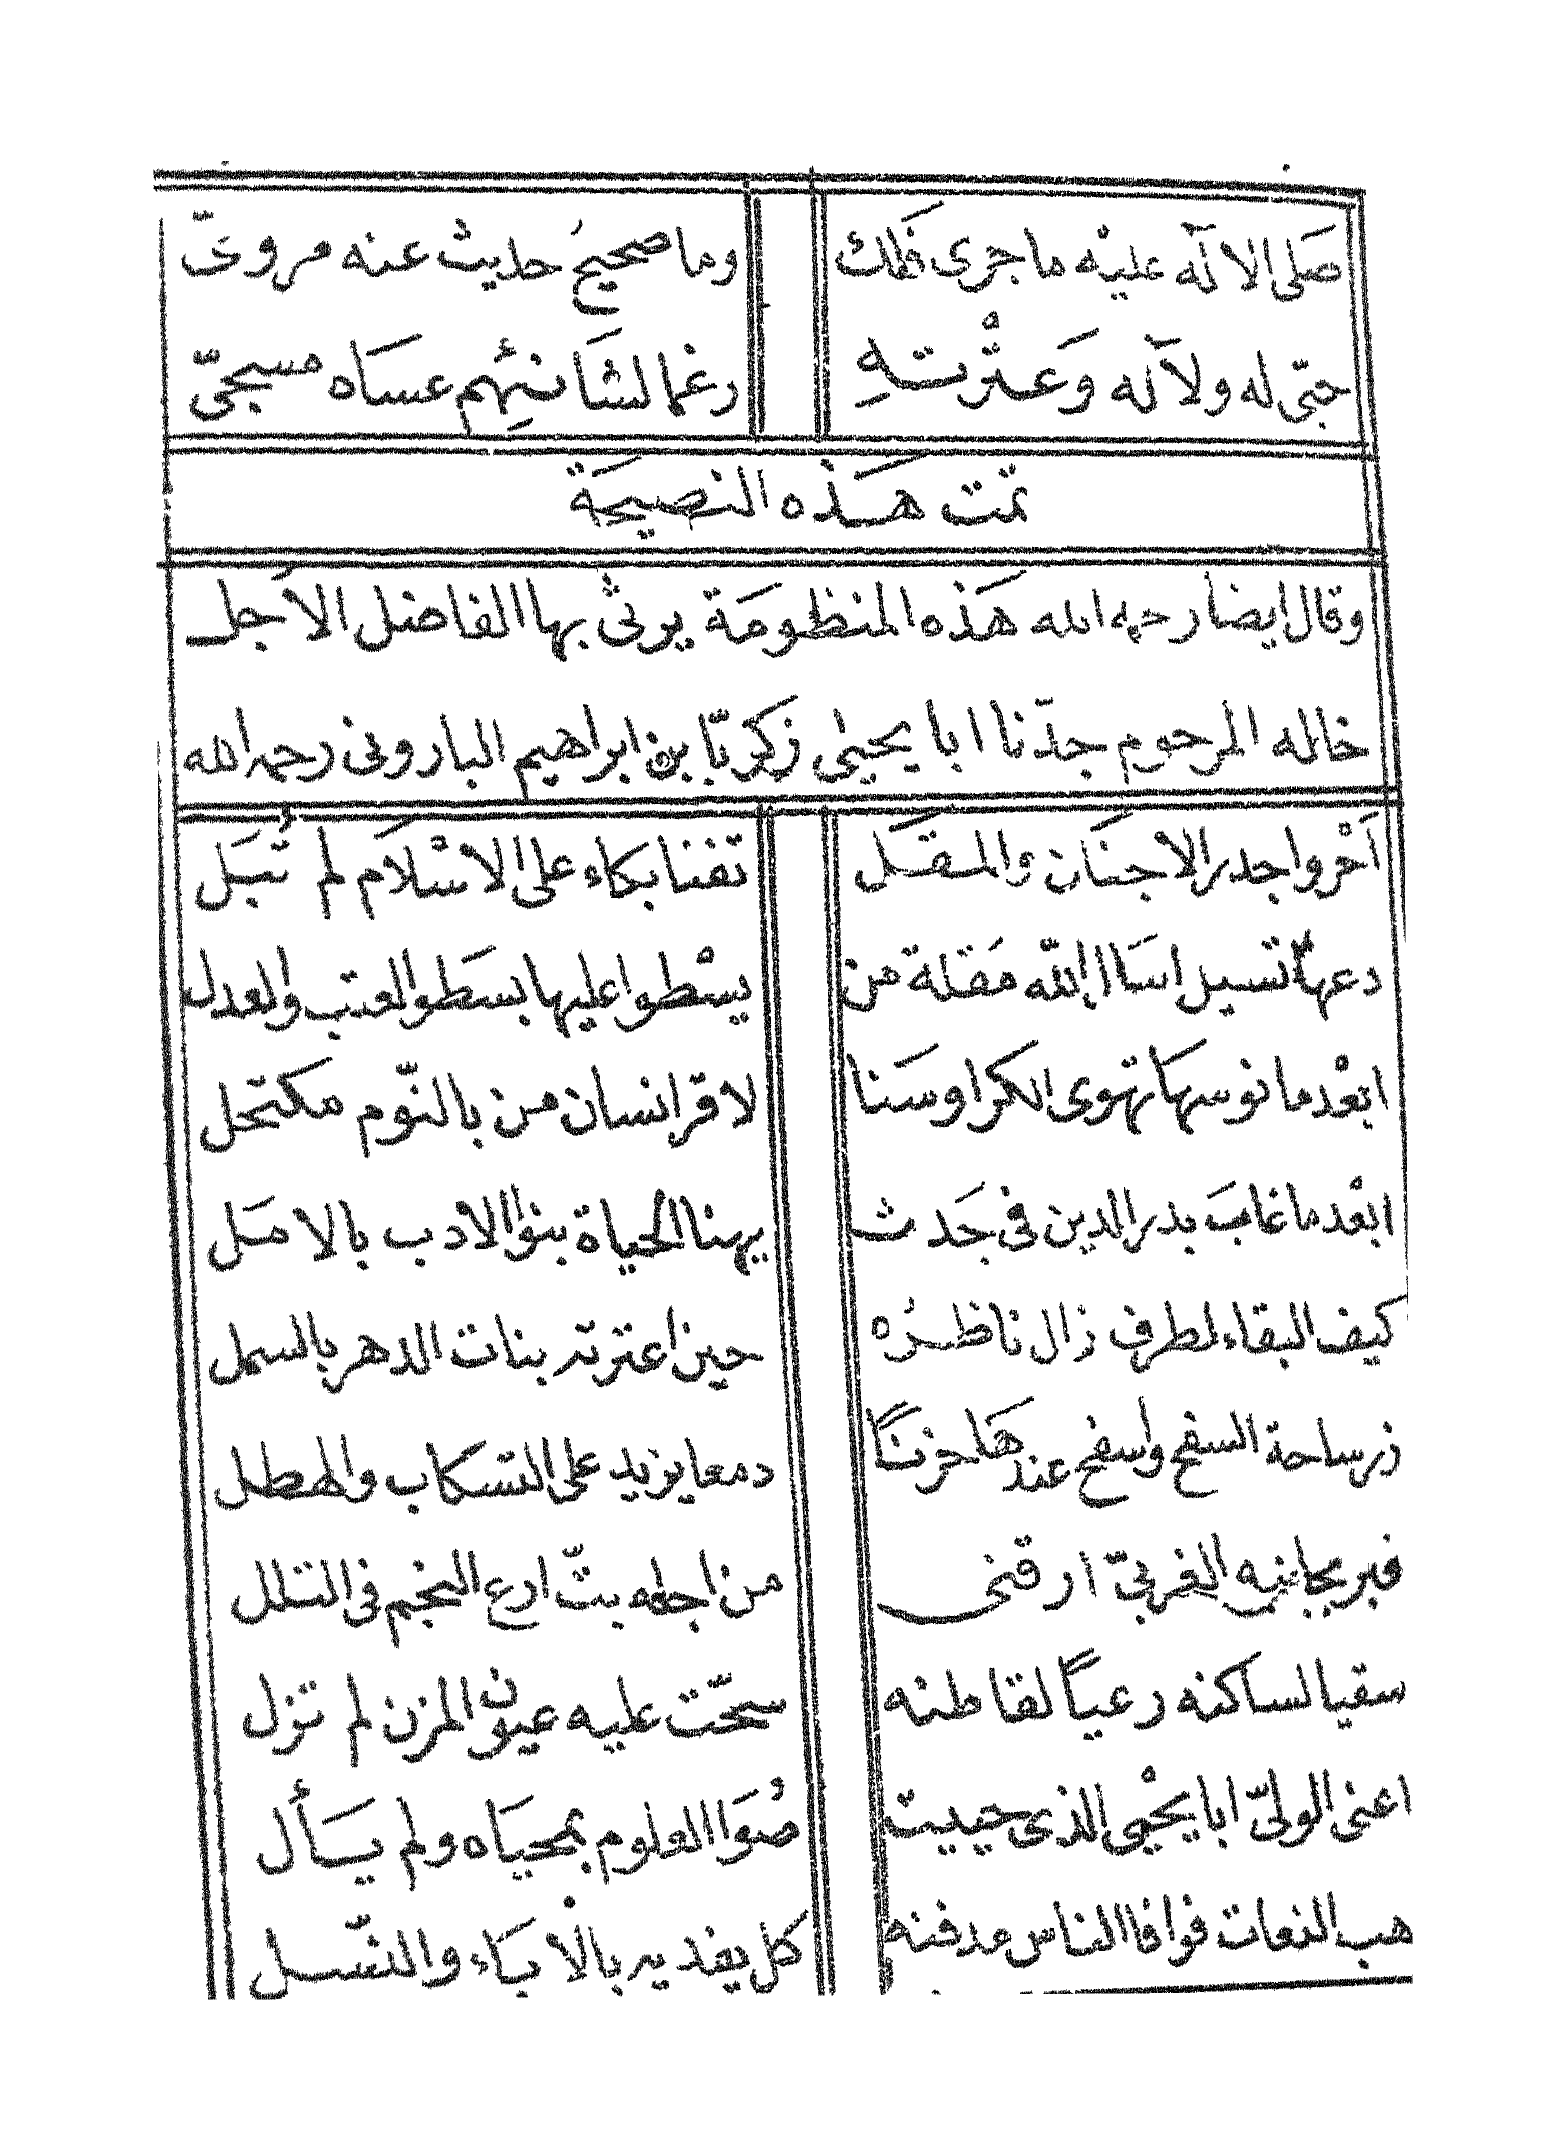 صَلى الالَه عليْه ما جرى فَلك وما صحيحُ حديث عنه مروىّ
حبّى له ولآله وَعترتهِ رغما لشَانئهِم عسَاه مسجىّ
تمّت هَذه النصيحَة
وقال ايضا رحمه الله هَذه المنظومَة يرثى بها الفاضل الاَجل
خاله المرحوم جدّنا ابا يحيى زكَريّا بن ابراهيم البارونى رحمه الله
اَحْر واجدر الاجنَان والمقَل تفنا بكاء على الاسْلاَم لم تُبَل
دعها تسيل اسَا الله مَقلة من يسْطوا عليها بسَطو العتب والعدل
ابعْد ما نوسهَا تهوى الكرَا وسَنا لا قر انسان من بالنّوم مكَتحل
ابعْد ما غابَ بدر الدين فى جَدث يهنا الحياة بنوا الادب بالامَل
كيف البقاء لطرف زال ناظرُه حين اعترته بنات الدهر بالسمل
زر ساحة السفح واسفح عندهَا حزنًا دمعا يزيد على التسكاب والهطل
قبر بجانبه الغربىّ ارقنى من اجله بتّ ارع النجم فى التلل
سقيا لساكنه رعيًا لقاطنه سحّت عليه عيون المزن لم تزل
اعنى الولىّ ابا يحْيى الذى حييت ضُوَا العلوم بمحيَاه ولم يسَأل
هب النعات فوافا الناس مدفنه كل يفديه بالأبَاء والنّسل